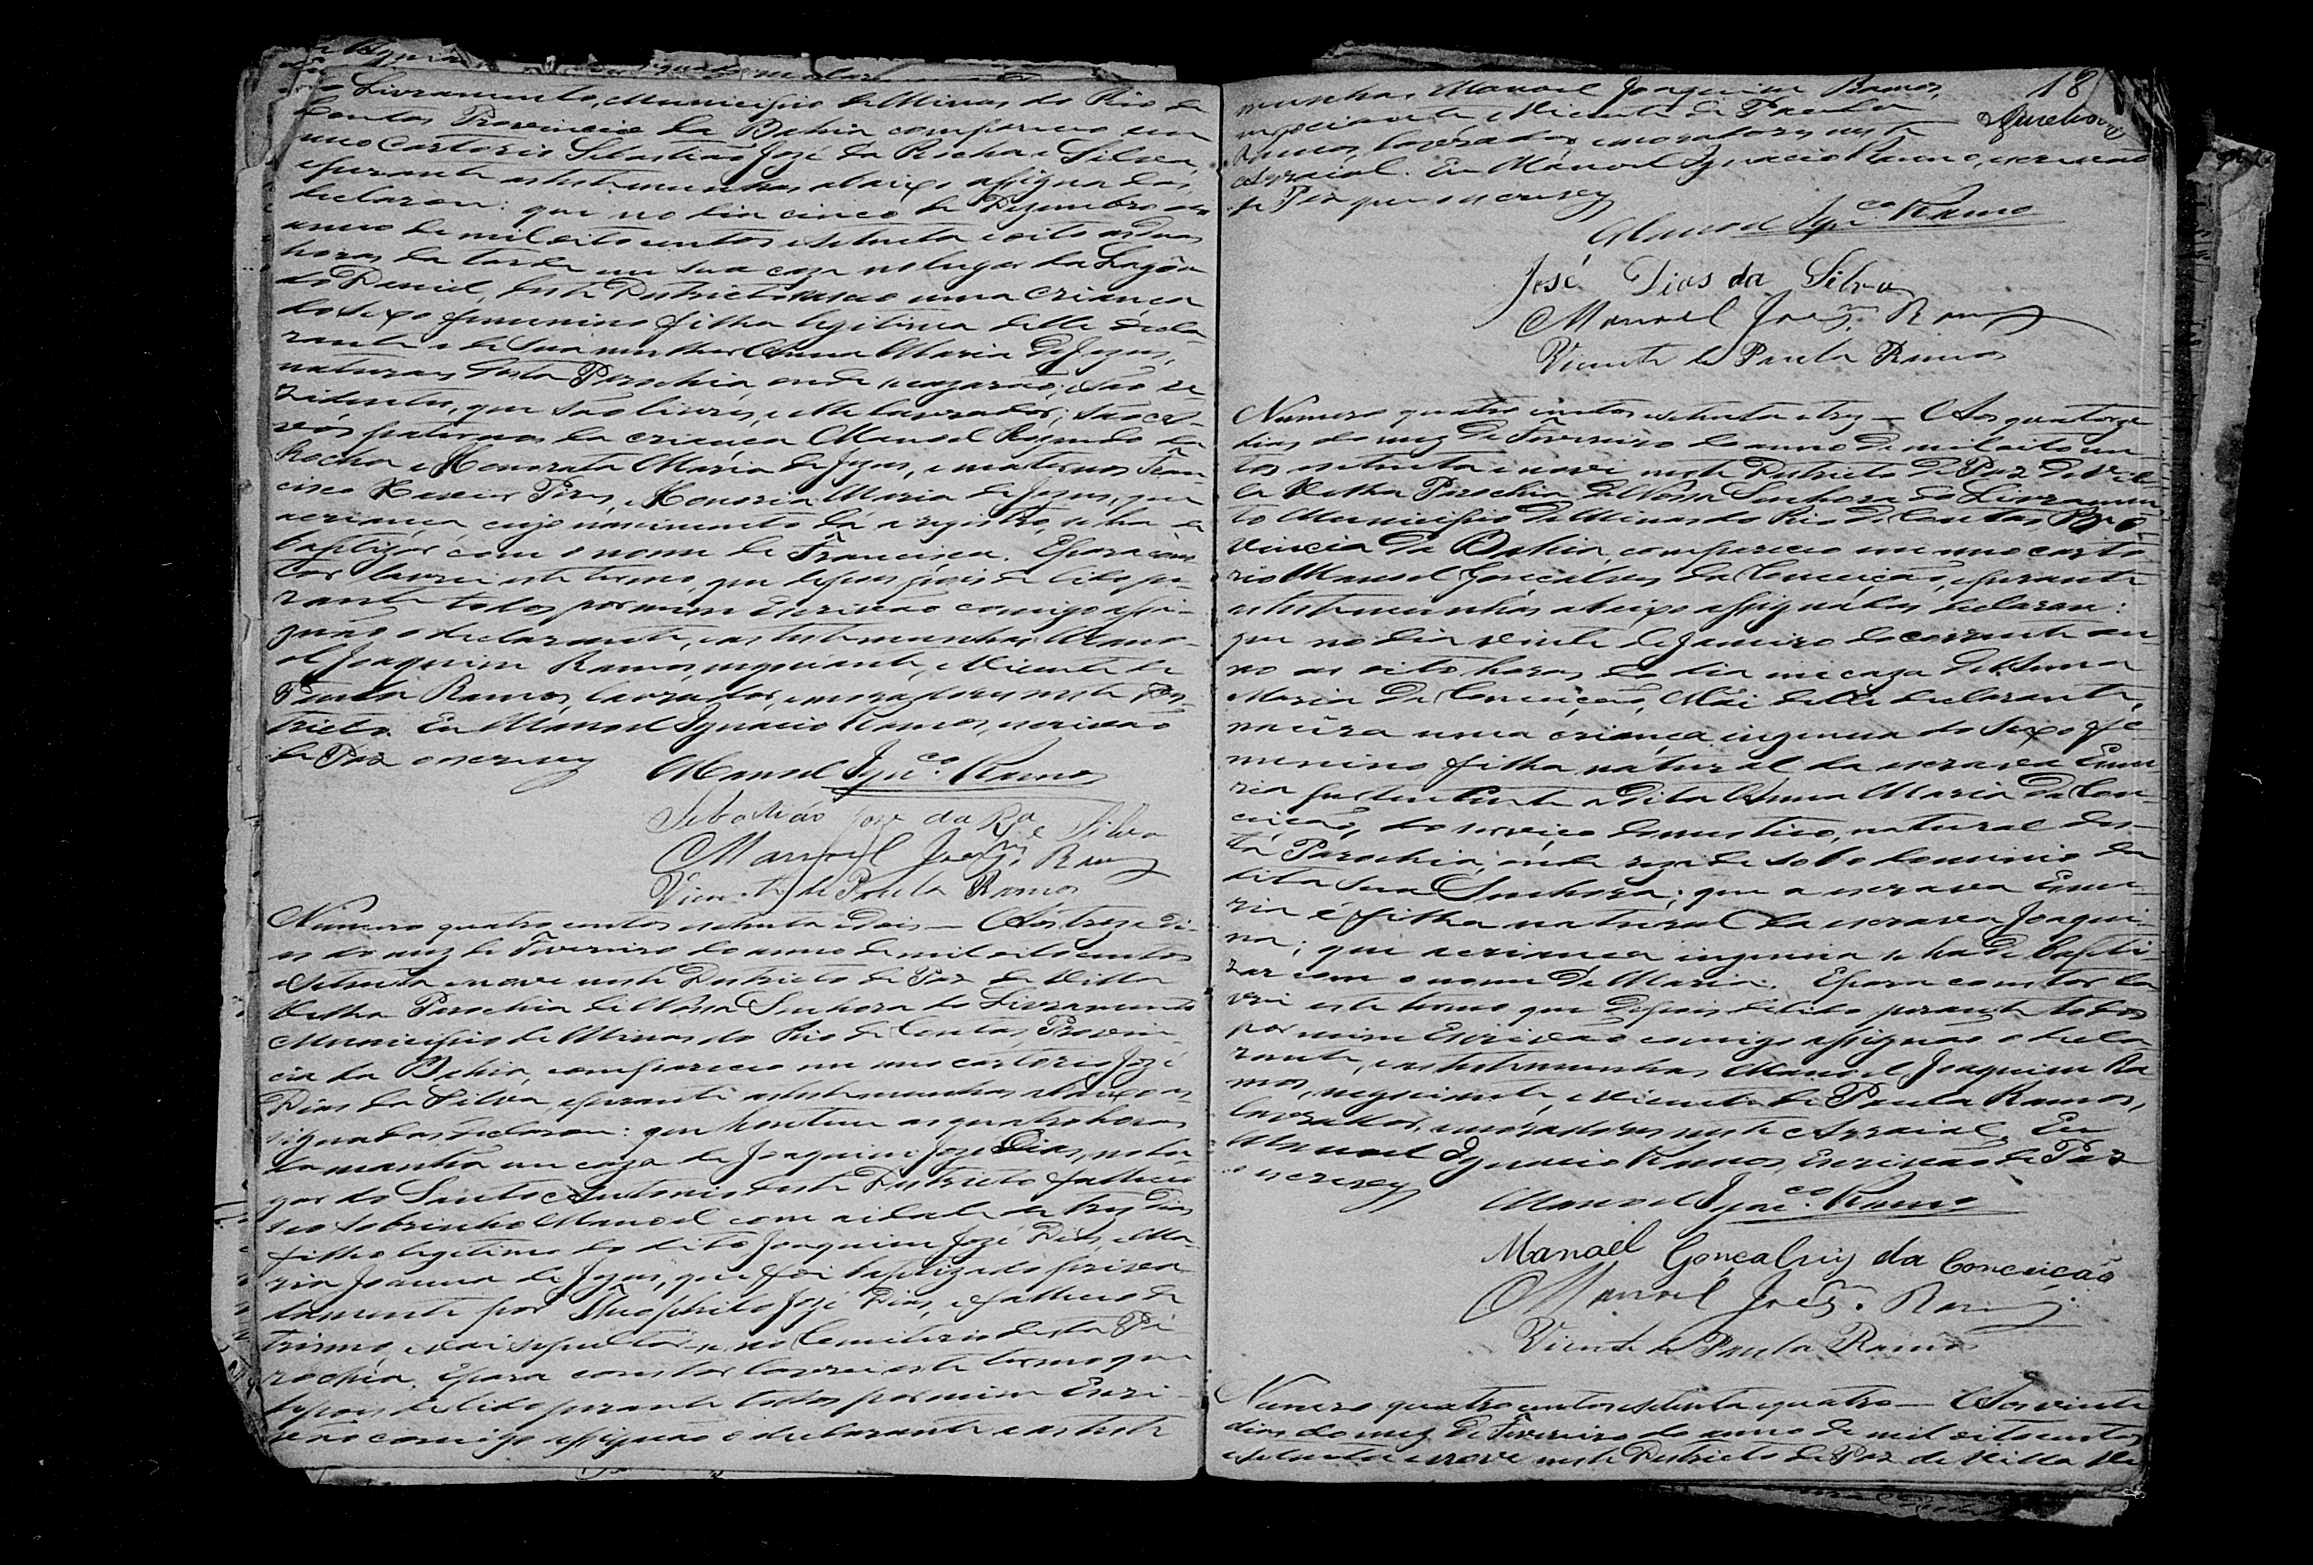 do Livramento, Municipio de Minas do Rio de
Contas Provincia da Bahia compareceo em
meo Cartorio Sebastião José da Rocha e Silva,
e perante as testemunhas abaixo assignadas,
declarou: que no dia cinco de Dezembro do
anno de mil oito centos e setenta e oito as duas
horas da tarde em sua caza no lugar da Lagôa
do deste Districto nasceo uma criança
do sexo femenino filha legitima delle decla
rante e de sua mulher Anna Maria de Jezus,
naturaes desta Parochia, onde se cazarão, e são re
zidentes, que são livres, e elle lavrador; são a-
vós paternos da criança Manoel Rezendo da
Rocha e Honorata Maria de Jezus, e maternos Fran
cisco Xavier Pires, e Honoria Maria de Jezus, que
a criança, cujo nascimento dá a registro, se ha de
baptizar com o nome de Francisca. E para cons
tar lavrei este termo, que depois de lido pe
rante todos por mim Escrivão comigo assi-
gnão o declarante, e as testemunhas Mano-
el Joaquim Ramos, negociante, e Vicente de
Paula Ramos, lavrador, moradores neste Dis-
tricto. Eu Manoel Ignacio Ramos, escrivão
de Paz o escrevy
Manoel Ign.co Ramos
Sebastião Joze da Ra e Silva
Manoel Joaq.m Ramos
Vicente de Paula Ramos
Numero quatro centos e setenta e dois — Aos treze di-
as do mez de Fevereiro do anno de mil oito centos
e setenta e nove neste Districto de Paz de Villa
Velha Parochia de Nossa Senhora do Livramento
Municipio de Minas do Rio de Contas, Provin
cia da Bahia, compareceo em meo cartorio José
Dias da Silva, e perante as testemunhas abaixo as
signadas declarou: que hontem as quatro horas
da manhã em caza de Joaquim Joze Dias, no lu-
gar do Santo Antonio deste Districto falleceo
seo sobrinho Manoel com a idade de tres dias
filho legitimo do dito Joaquim Jozé Dias, e Ma-
ria Joanna de Jezus, que foi baptizado priva-
damente por Theophilo Jozé Dias, e falleceo de
trismo, e vai sepultar-se no Cemiterio desta Pa
rochia. E para constar lavrei este termo que
depois de lido perante todos por mim Escri-
vão comigo assignão o declarante e as teste
18
munhas Manoel Joaquim Ramos,
negociante, e Vicente de Paula
Ramos, lavrador, moradores neste
Arraial. Eu Manoel Ignacio Ramos, escrivão
de Paz que o escrevy
Manoel Ign.co Ramos
José Dias da Silva
Manoel Joaq.m Ramos
Vicente de Paula Ramos
Numero quatro centos e setenta e tres — Aos quatorze
dias do mez de Fevereiro do anno de mil oito cen
tos e setenta e nove neste Districto de Paz de Vil
la Velha Parochia de Nossa Senhora do Livramen
to Municipio de Minas do Rio de Contas Pro
vincia da Bahia, compareceo em meo carto
rio Manoel Gonçalves da Conceição, e perante
as testemunhas abaixo assignadas declarou:
que no dia vinte de Janeiro do corrente an
no as oito horas do dia em caza de Anna
Maria da Conceição, Mãi delle declarante,
nascêra uma criança ingenua do sexo fe
menino filha natural da escrava Eme-
ria pertencente a dita Anna Maria da Con-
ceição, do serviço domestico, natural des-
ta Parochia, onde rezide sob o dominio da
dita sua Senhora; que a escrava Eme-
ria é filha natural da escrava Joaqui-
na; que a criança ingenua se ha de bapti
zar com o nome de Maria. E para constar la
vrei este termo que depois de lido perante todos
por mim Escrivão comigo assignão o decla
rante, e as testemunhas Manoel Joaquim Ra
mos, negociante, e Vicente de Paula Ramos,
lavrador, moradores neste Arraial. Eu
Manoel Ignacio Ramos, Escrivão de Paz
o escrevy
Manoel Ign.co Ramos
Manoel Gonçalvis da Conceição
Manoel Joaq.m Ramos
Vicente de Paula Ramos
Numero quatro centos e setenta e quatro — Aos vinte
dias do mez de Fevereiro do anno de mil oito centos
e setenta e nove neste Districto de Paz de Villa Ve